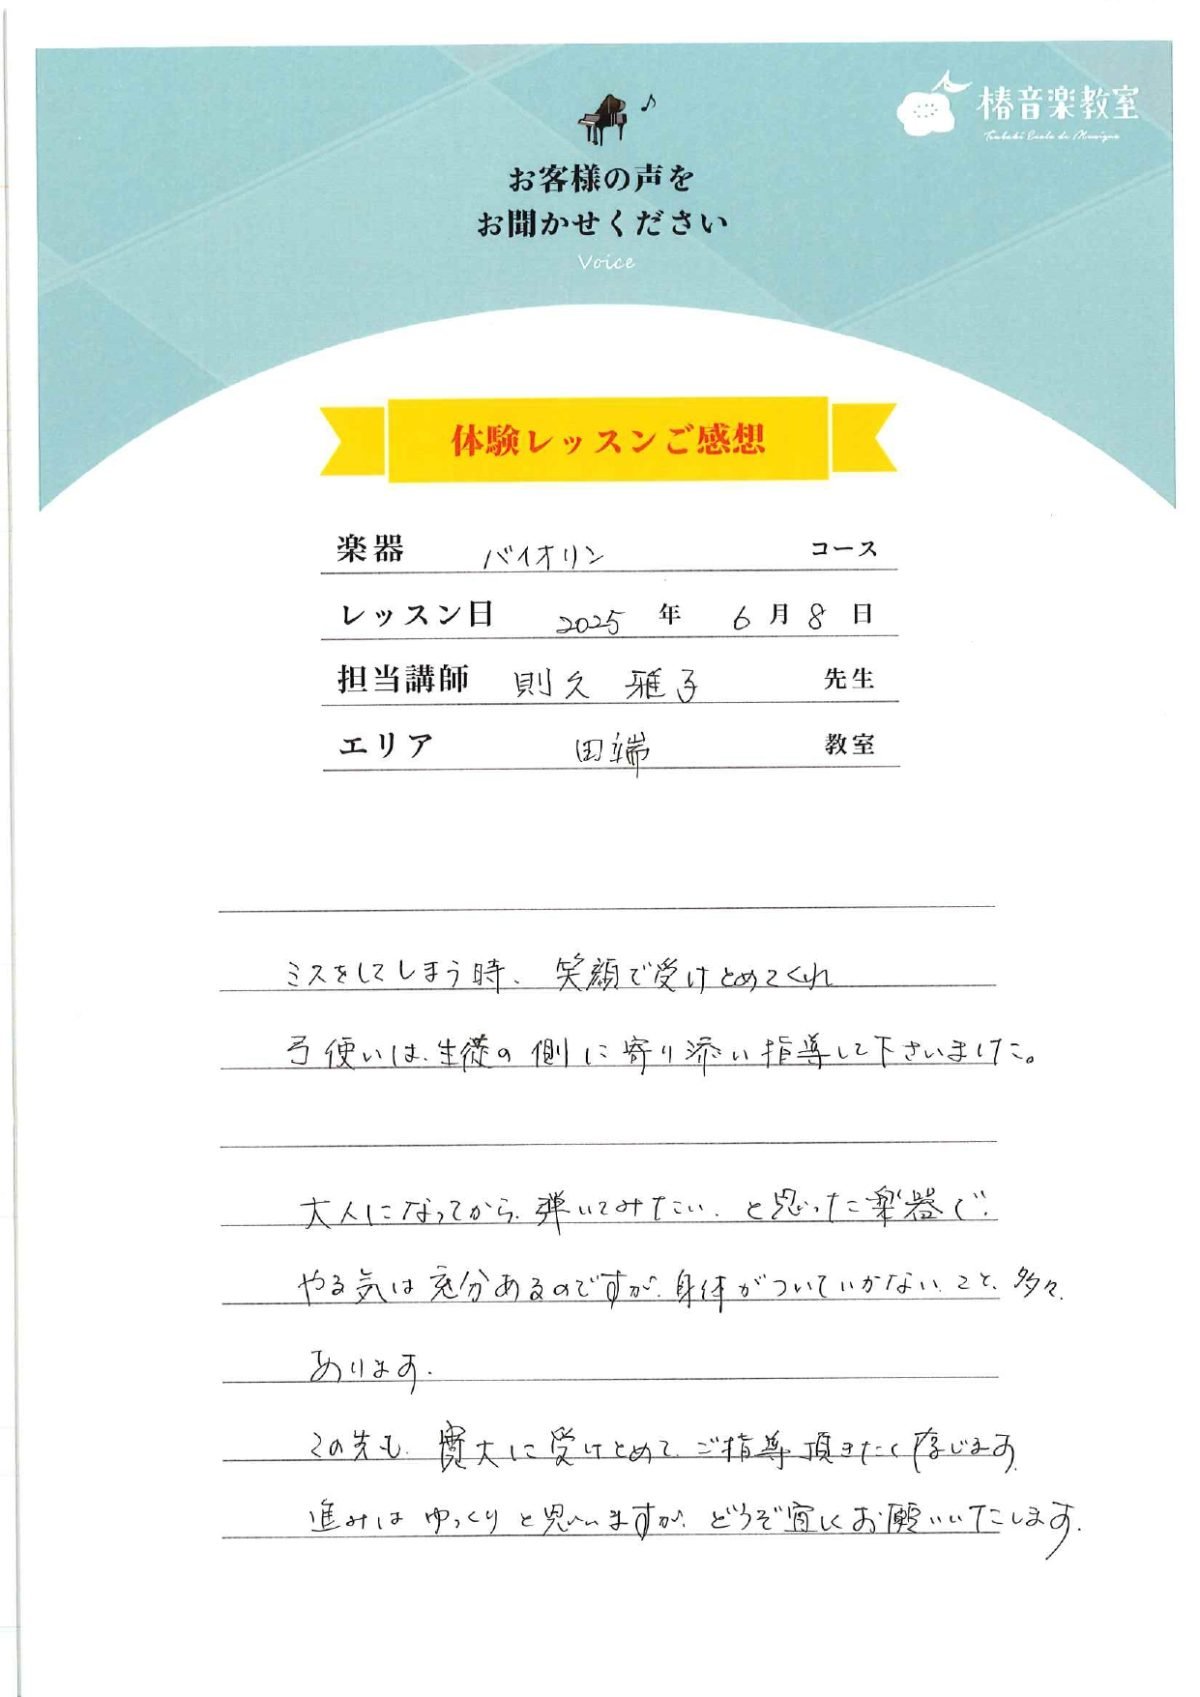 椿音楽教室
Tsubaki Ecole de Musique
お客様の声を
お聞かせください
Voice
体験レッスンご感想
楽器 バイオリン コース
レッスン日 2025 年 6 月 8 日
担当講師 則久 雅子 先生
エリア 田端 教室
ミスをしてしまう時、笑顔で受けとめてくれ
弓使いは、生徒の側に寄り添い指導して下さいました。
大人になってから、弾いてみたい、と思った楽器で、
やる気は充分あるのですが、身体がついていかないこと、多々、
あります。
この先も、寛大に受けとめて、ご指導頂きたく存じます。
進みはゆっくりと思いますが、どうぞ宜しくお願いいたします。